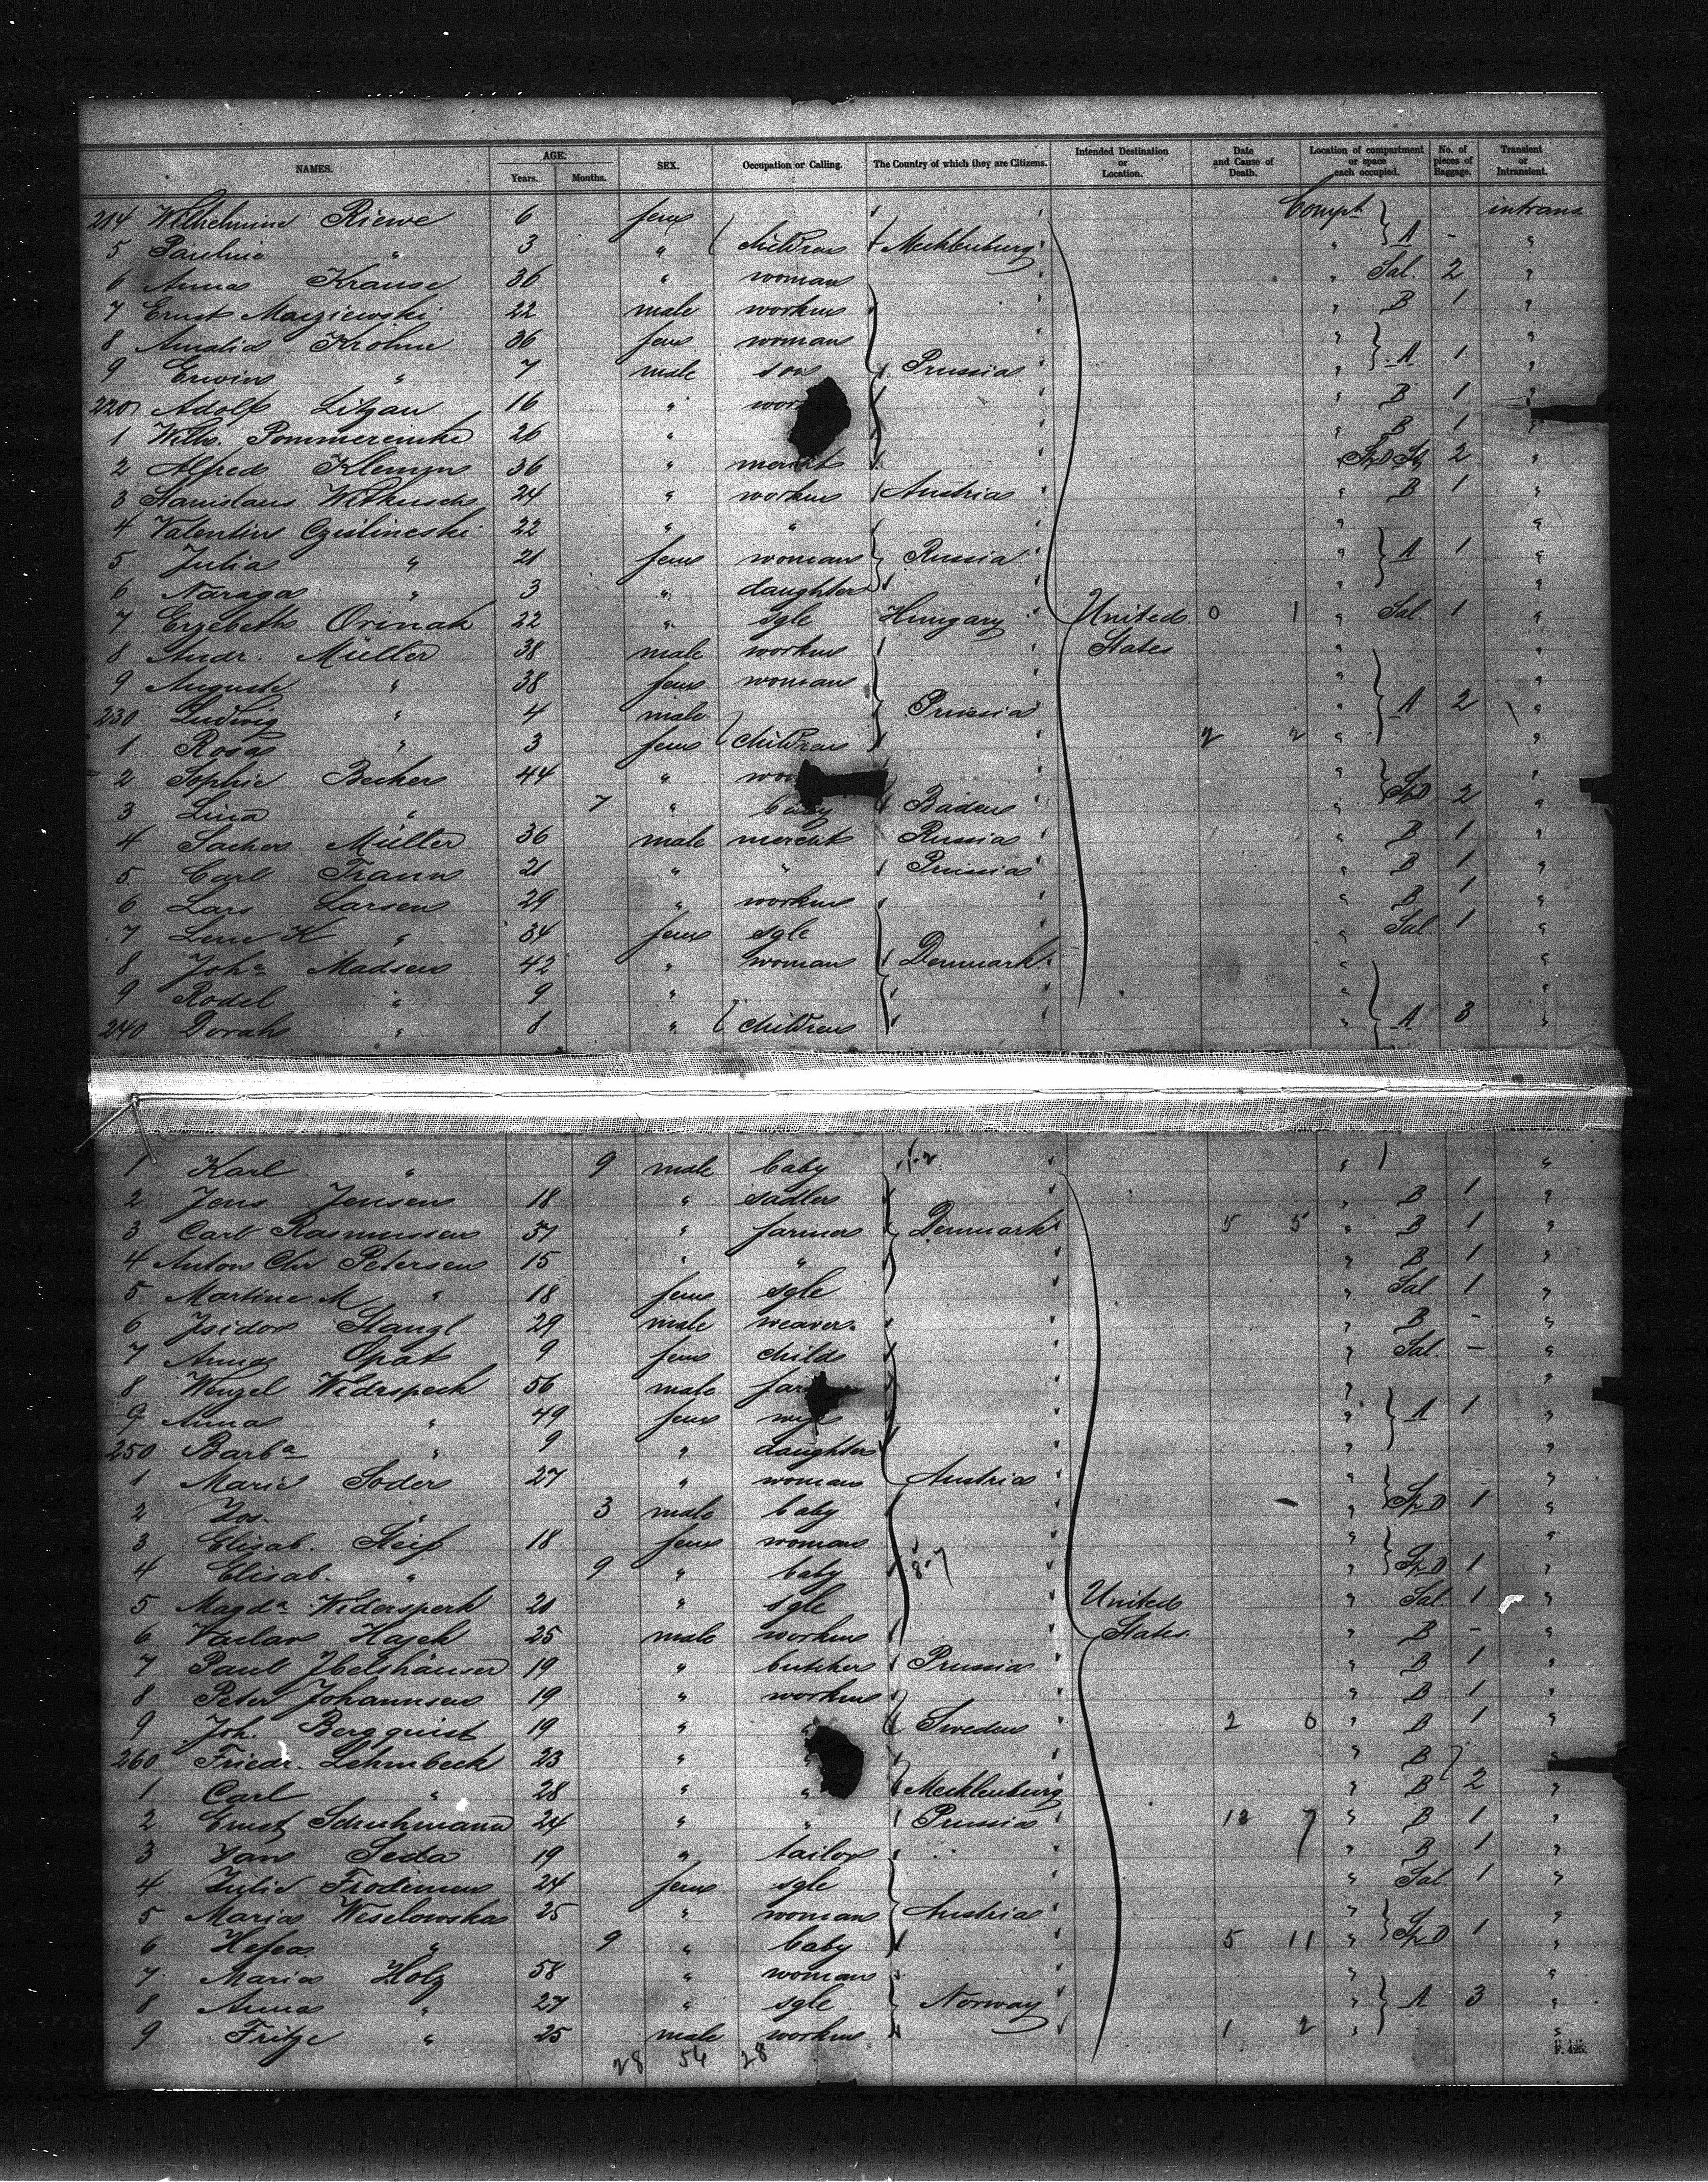 NAMES. AGE. Years. Months. SEX. Occupation or Calling. The Country of which they are Citizens. Intended Destination or Location. Date and Cause of Death. Location of compartment or space each occupied. No. of pieces of Baggage. Transient or Intransient.
214 Wilhelmine Riewe 6 fem Compt intrans
5 Pauline " 3 " children Mecklenburg " A - "
6 Anna Krause 36 " woman " Sal. 2 "
7 Ernst 22 male workm " B 1 "
8 Amalia Krohn 36 fem woman " "
9 Erwin " 7 male son Prussia " A 1 "
220 Adolf Litzau 16 " " B 1 "
1 Wilh. Pommerenke 26 " " B 1 "
2 Alfred 36 " mercht " 2 "
3 Stanislaus 24 " workm Austria " B 1 "
4 Valentin 22 " " " "
5 Julia " 21 fem woman Russia " A 1 "
6 Naraga " 3 " daughter " "
7 Erzebeth Orinak 22 " sgle Hungary United 0 1 " Sal. 1 "
8 Andr. Müller 38 male workm States " "
9 Auguste " 38 fem woman " "
230 Ludwig " 4 male Prussia " A 2 "
1 Rosa " 3 fem children 2 2 " "
2 Sophie Becker 44 " " "
3 Lina " 7 " baby Baden " SpD 2 "
4 Müller 36 male mercht Russia " B 1 "
5 Carl 21 " " Prussia " B 1 "
6 Lars Larsen 29 " workm " B 1 "
7 Lene K " 34 fem sgle " Sal. 1 "
8 Joha Madsen 42 " woman Denmark " "
9 Rodel " 9 " " "
240 Dorah " 8 " children " A 3 "
1 Karl " 9 male baby " "
2 Jens Jensen 18 " sadler " B 1 "
3 Carl Rasmussen 37 " farmer Denmark 5 5 " B 1 "
4 Anton Chr Petersen 15 " " " B 1 "
5 Martine M " 18 fem sgle " Sal 1 "
6 Isidor Stangl 29 male weaver " B - "
7 Anna Opat 9 fem child " Sal. - "
8 Wenzel Widrspeck 56 male " "
9 Anna " 49 fem wife " A 1 "
250 Barba " 9 " daughter " "
1 Marie Soder 27 " woman Austria " "
2 Jos. " 3 male baby " SpD 1 "
3 Elisab. Steif 18 fem woman " "
4 Elisab. " 9 " baby 8-7 " SpD 1 "
5 Magda Widersperk 21 " sgle United " Sal 1 "
6 Vaclav Hajek 25 male workm States " B - "
7 Paul Ibelshäuser 19 " butcher Prussia " B 1 "
8 Peter Johannsen 19 " workm " B 1 "
9 Joh. Bergquist 19 " " Sweden 2 0 " B 1 "
260 Friedr. Lehmbeck 23 " " " B "
1 Carl " 28 " " Mecklenburg " B 2 "
2 Ernst Schuhmann 24 " " Prussia 7 " B 1 "
3 Jan Seda 19 " tailor " B 1 "
4 Julie 24 fem sgle " Sal. 1 "
5 Maria Weselowska 25 " woman Austria " "
6 " 9 " baby 5 11 " SpD 1 "
7 Maria Holz 58 " woman " "
8 Anna " 27 " sgle Norway " A 3 "
9 Fritze " 25 male workm 1 2 " "
28 54 28